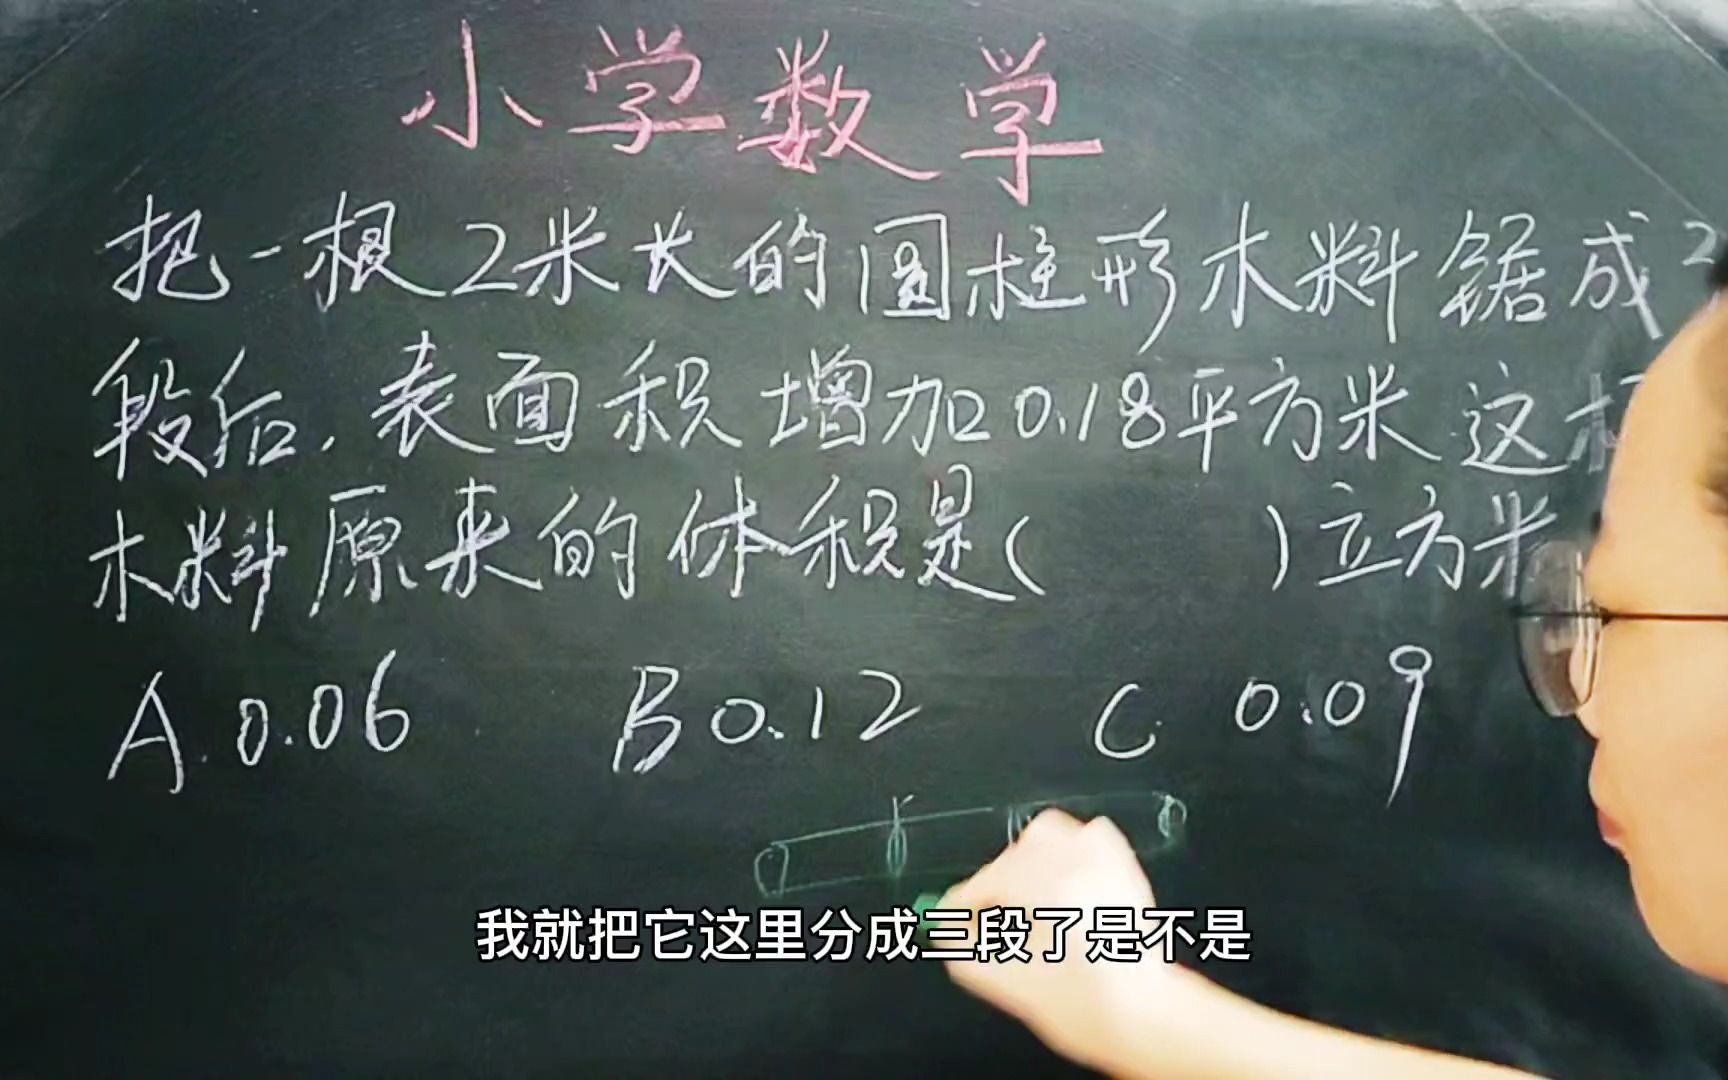 小学数学
把一根2米长的圆柱形木料锯成
段后,表面积增加0.18平方米这
木料原来的体积是( )立方米
A.0.06 B0.12 C.0.09
我就把它这里分成三段了是不是